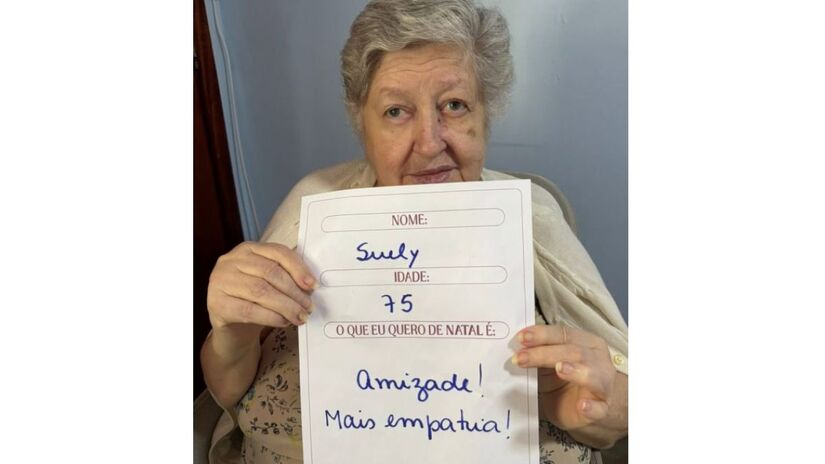 NOME:
Suely
IDADE:
75
O QUE EU QUERO DE NATAL É:
Amizade!
Mais empatia!